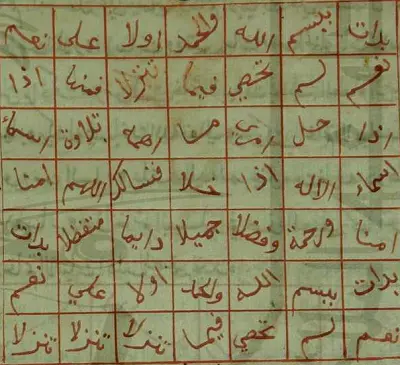 بدات ببسم الله والحمد اولا على نعم
نعم لم تحصي فيما تنزلا اذا
اذا حل تلاوة اسماء
اسماء الاله اذا خلا فنسالك اللهم امنا
امنا ورحمة وفضلا جميلا دايما متفضلا بدات
بدات ببسم الله والحمد اولا علي نعم
نعم لم تحصي فيما تنزلا تنزلا تنزلا